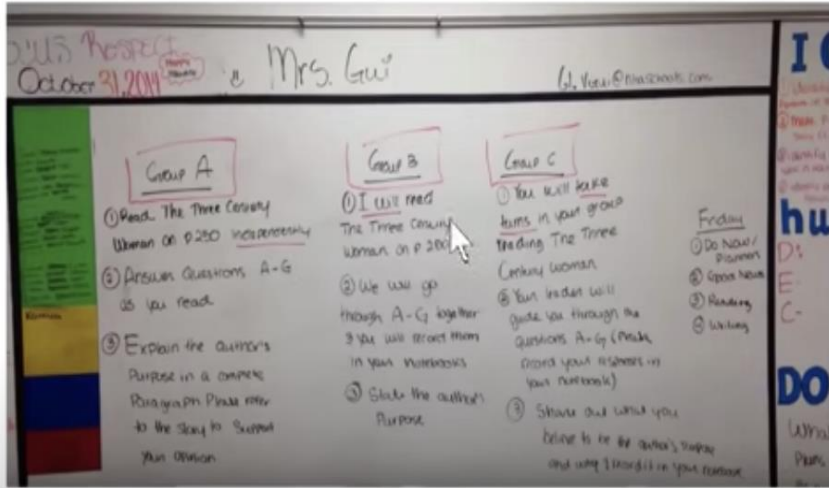 RESPECT
October 31, 2014
Mrs. Gui
Group A
① Read The Three Century
Woman on P 250 independently
② Answer Questions A-G
as you read
③ Explain the author's
Purpose in a complete
Paragraph. Please refer
to the story to support
your opinion
Group B
① I will read
The Three Century
Woman on P 250
② We will go
through A-G together
& you will record them
in your notebooks
③ State the author's
Purpose
Group C
① You will take
turns in your group
reading The Three
Century Woman
② Your leader will
guide you through the
questions A-G
record your responses in
your notebook)
③ Share out what you
believe to be the author's Purpose
and why & record it in your notebook
Friday
① Do Now/
Planner
② Good News
③ Reading
④ Writing
I
hu
D:
E:
C-
DO